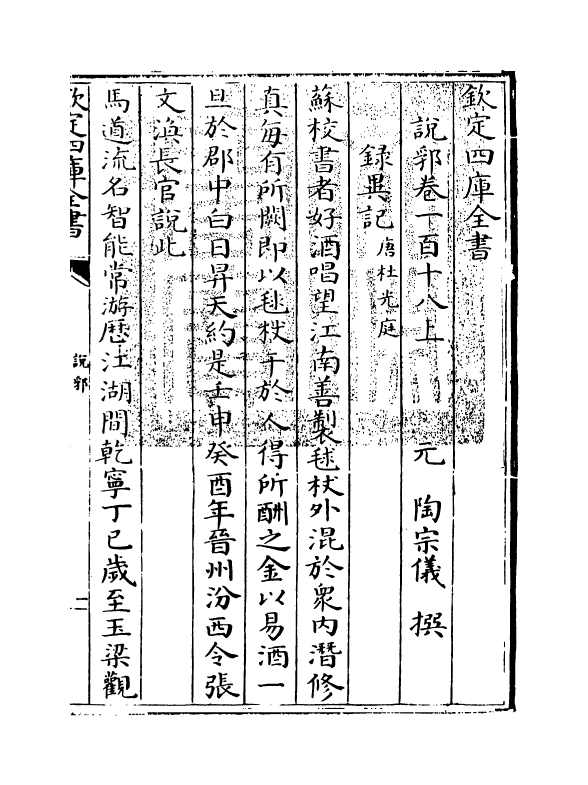 欽定四庫全書
說郛卷一百十八上　元　陶宗儀　撰
錄異記唐杜光庭
蘇校書者好酒唱望江南善製毬杖外混於衆内潛修
真每有所闕即以毬杖干於人得所酬之金以易酒一
旦於郡中白日昇天約是壬申癸酉年晉州汾西令張
文渙長官說此
馬道流名智能常游歷江湖間乾寧丁巳歲至玉梁觀
欽定四庫全書
說郛